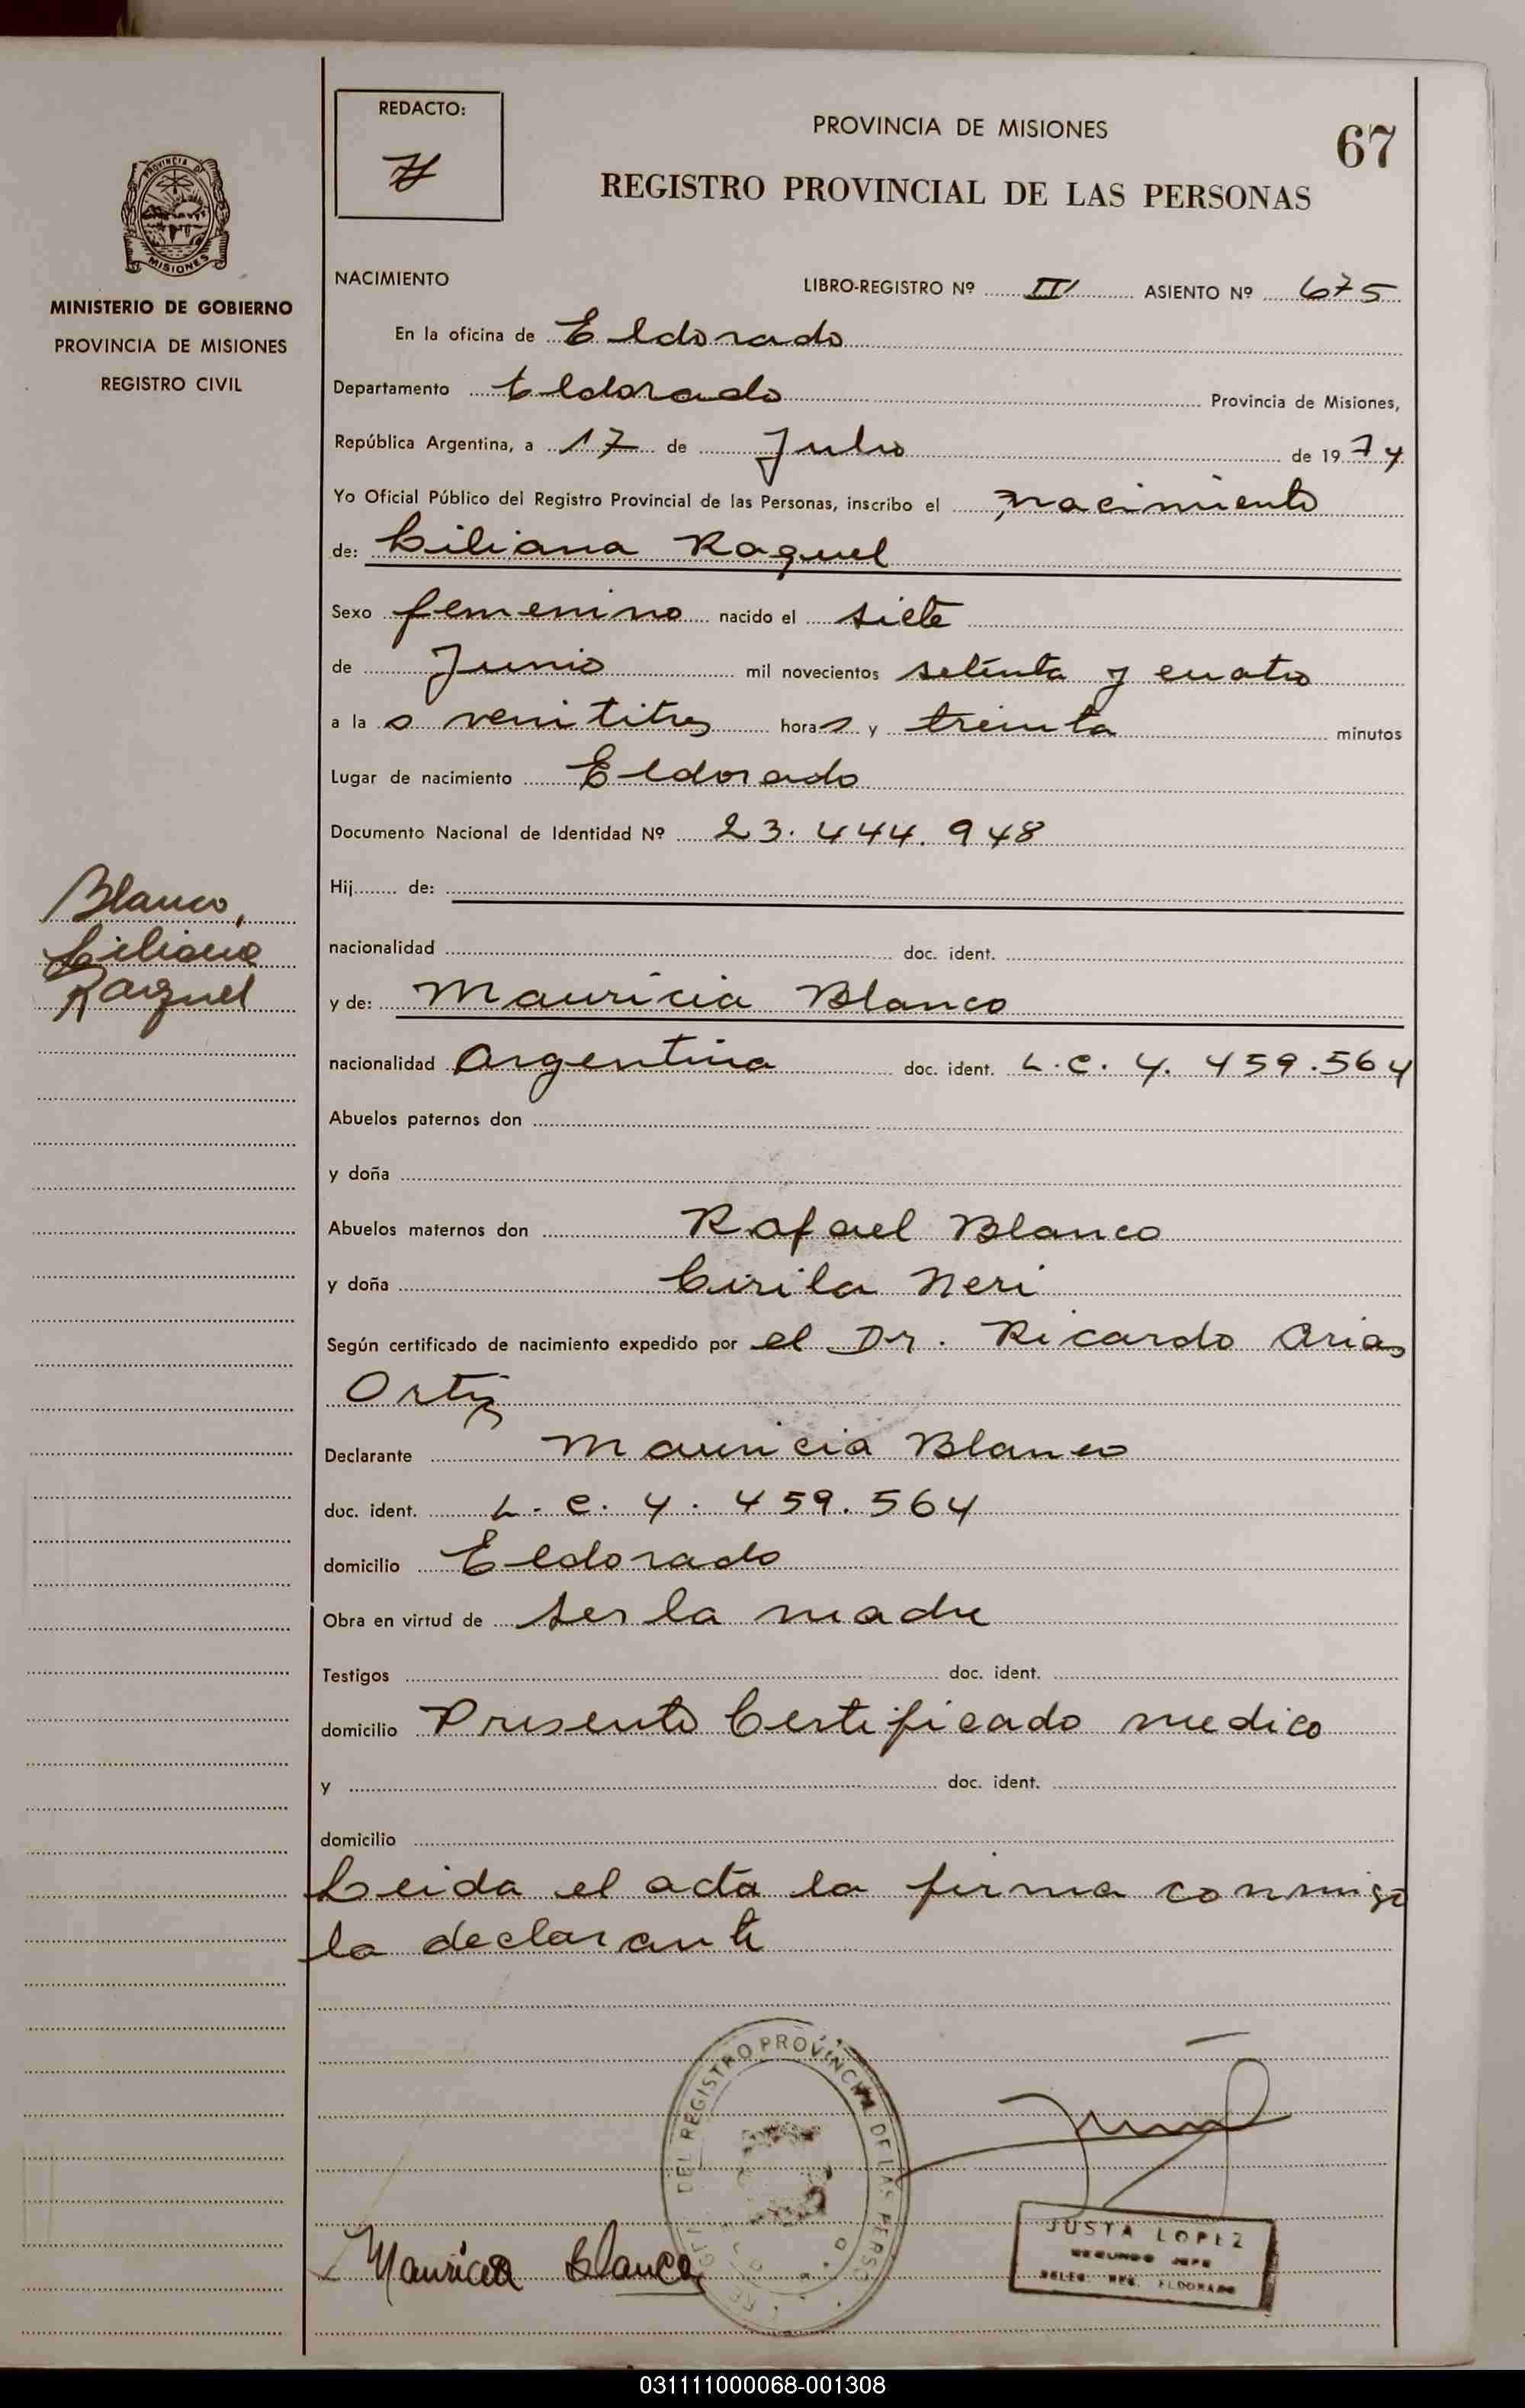 REDACTO:
PROVINCIA DE MISIONES
67
REGISTRO PROVINCIAL DE LAS PERSONAS
PROVINCIA DE
MISIONES
MINISTERIO DE GOBIERNO
PROVINCIA DE MISIONES
REGISTRO CIVIL
NACIMIENTO LIBRO-REGISTRO Nº III ASIENTO Nº 675
En la oficina de Eldorado
Departamento Eldorado Provincia de Misiones,
República Argentina, a 17 de Julio de 1974
Yo Oficial Público del Registro Provincial de las Personas, inscribo el nacimiento
de: Liliana Raquel
Sexo femenino nacido el siete
de Junio mil novecientos setenta y cuatro
a las venititres horas y treinta minutos
Lugar de nacimiento Eldorado
Documento Nacional de Identidad Nº 23.444.948
Hij de:
nacionalidad doc. ident.
y de: Mauricia Blanco
nacionalidad Argentina doc. ident. L.C. 4.459.564
Abuelos paternos don
y doña
Abuelos maternos don Rafael Blanco
y doña Cirila Neri
Según certificado de nacimiento expedido por el Dr. Ricardo Arias
Ortiz
Declarante Mauricia Blanco
doc. ident. L.C. 4.459.564
domicilio Eldorado
Obra en virtud de ser la madre
Testigos doc. ident.
domicilio Presento Certificado medico
y doc. ident.
domicilio
Leida el acta la firma conmigo
la declarante
Blanco,
Liliana
Raquel
DEL REGISTRO PROVINCIAL DE LAS PERSO
Mauricia Blanco
JUSTA LOPEZ
SEGUNDO JEFE
DELEG. REG. ELDORADO
031111000068-001308